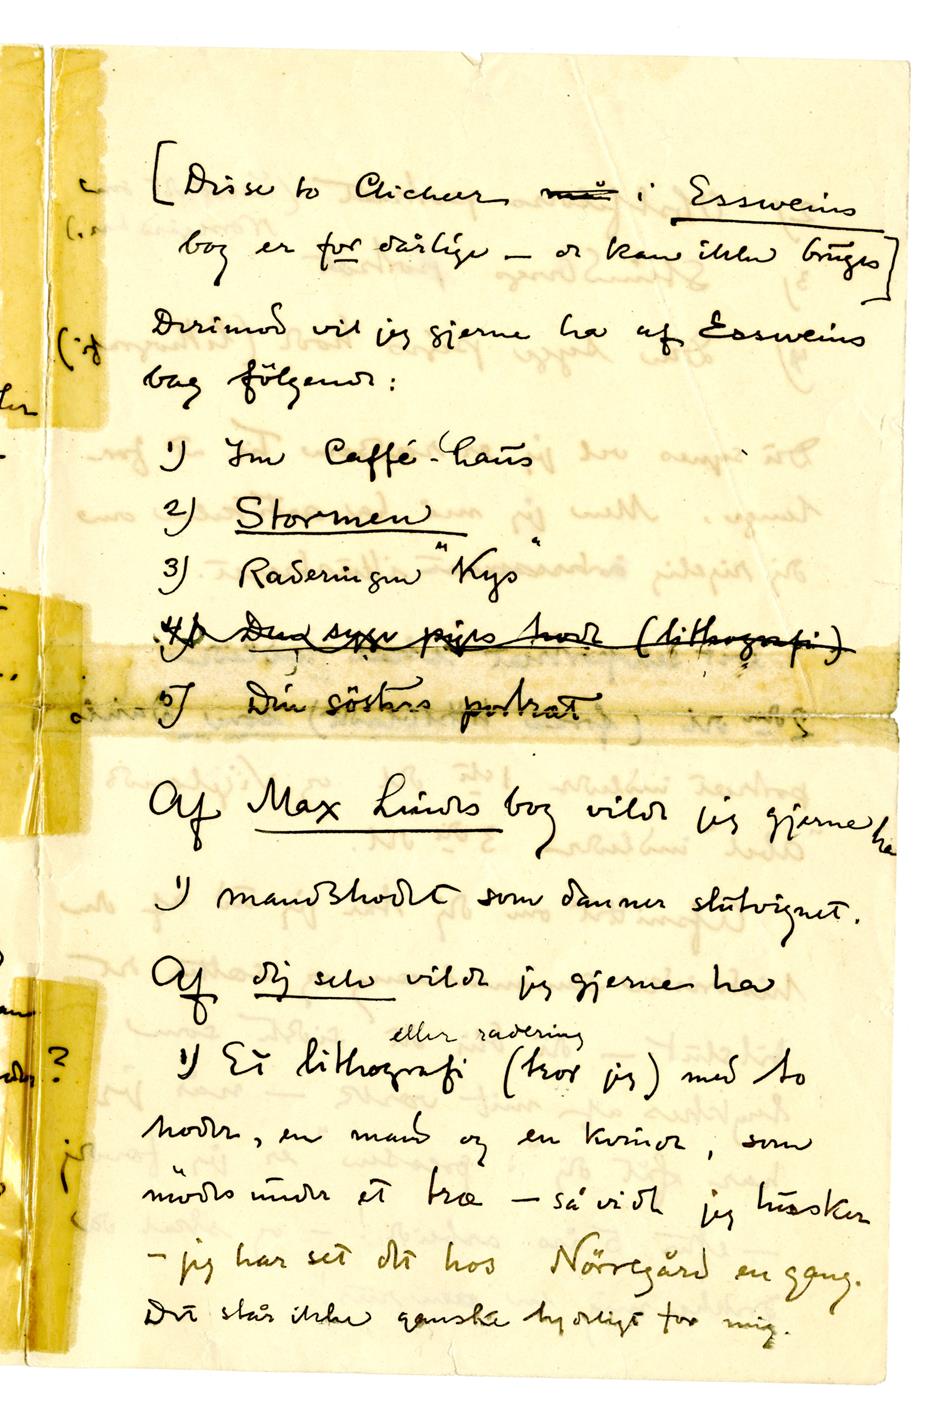 [Disse to Clicheer ~~må~~ i Essweins
bog er for dårlige – de kan ikke bruges]
Derimod vil jeg gjerne ha af Essweins
bog følgende:
1) Im Caffé-haus
2) Stormen
3) Raderingen "Kys"
~~4) Den syge piges hode (lithografi)~~
5) Din søsters portræt
Af Max Lindes bog vilde jeg gjerne ha
1) mandshodet som danner slutvignet.
Af dig selv vilde jeg gjerne ha
eller radering
1) Et lithografi (tror jeg) med to
hoder, en mand og en kvinde, som
mødes under et træ – så vidt jeg husker
– jeg har set det hos Nörregård en gang.
Det står ikke ganske tydeligt for mig.